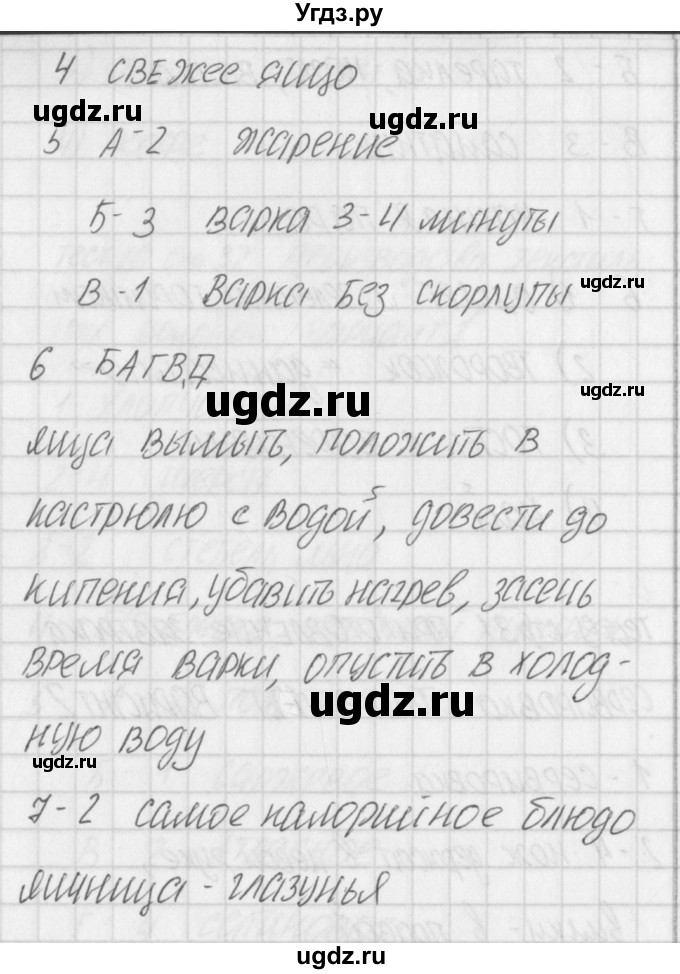 Угдз.ру
4 свежее яицо
ugdz.ru
ugdz.ru
5 А-2 жарение
Б-3 варка 3-4 минуты
В-1 варка без скорлупы
ugdz.ru
6 БАГВД
ugdz.ru
ugdz.ru
яица вымыть, положить в
кастрюлю с водой, довести до
кипения, убавить нагрев, засень
время варки, опустить в холод-
ugdz.ru
ную воду
ugdz.ru
7-2 самое калорийное блюдо
яичница - глазунья
ugdz.ru
ugdz.ru